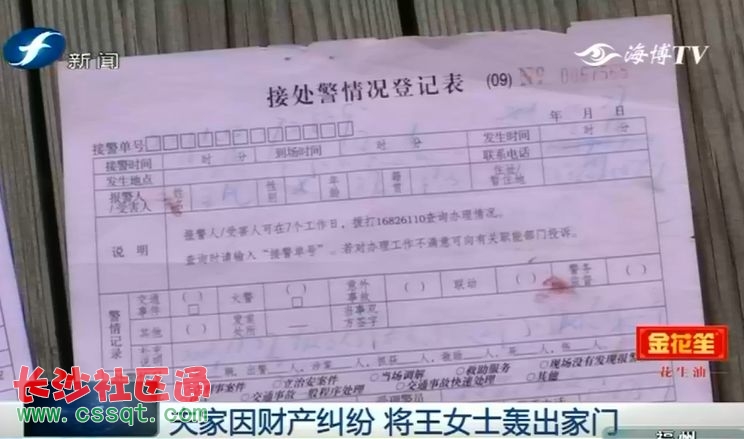 新闻
海博TV
接处警情况登记表 (09) №
年 月 日
接警单号
时 分
接警时间 时 分 到场时间 时 分 发生时间
发生地点 联系电话
报警人/受害人 姓名 性别 年龄 籍贯 住址/暂住地
说明
报警人/受害人可在7个工作日，拨打16826110查询办理情况。
查询时请输入“接警单号”。若对办理工作不满意可向有关职能部门投诉。
警情记录
交通事件 ( ) 火警 ( ) 意外事故 ( ) 联动 ( ) 警务监督 ( )
其他 ( ) 发案处所 当事双方签字
○立治安案件 ○当场调解 ○救助服务 ○现场没有发现报警
○交通事故一般程序处理 ○交通事故快速处理 ○其他
金花笙
花生油
长沙社区通
www.cssqt.com
夫家因财产纠纷 将王女士轰出家门
福州